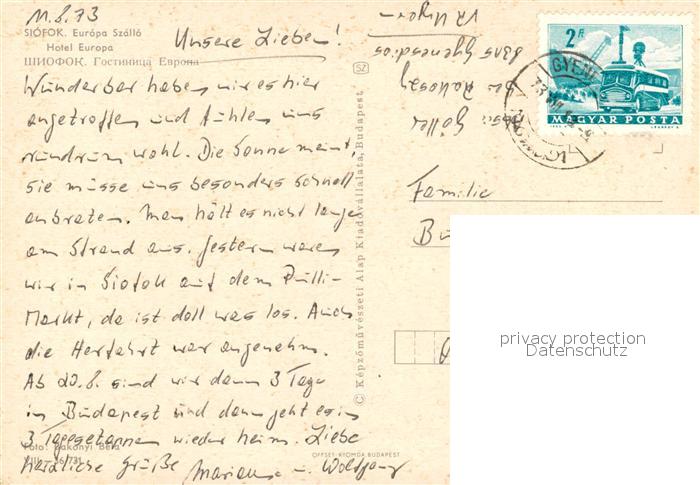 11.8.73
SIÓFOK. Európa Szálló
Hotel Europa
ШИОФОК. Гостиница Европа
Unsere Lieben!
Wunderbar haben wir es hier
angetroffen und fühlen uns
rundrum wohl. Die Sonne meint,
sie müsse uns besonders schnell
anbraten. Man hält es nicht lange
am Strand aus. Gestern waren
wir in Siofok auf dem Pulli-
Markt, da ist doll was los. Auch
die Herfahrt war angenehm.
Ab 20.8. sind wir dann 3 Tage
in Budapest und dann geht es in
3 Tagesetappen wieder heim. Liebe
herzliche Grüße Marianne u. Wolfgang
Foto: Bakonyi Béla
VIII-56/731
OFFSET NYOMDA BUDAPEST
© Képzőművészeti Alap Kiadóvállalata, Budapest
SZ
Göller
bei Rakoczy
8315 Gyenesdiás
VR Ungarn
2 Ft
MAGYAR POSTA
GYENE
73
Familie
privacy protection
Datenschutz